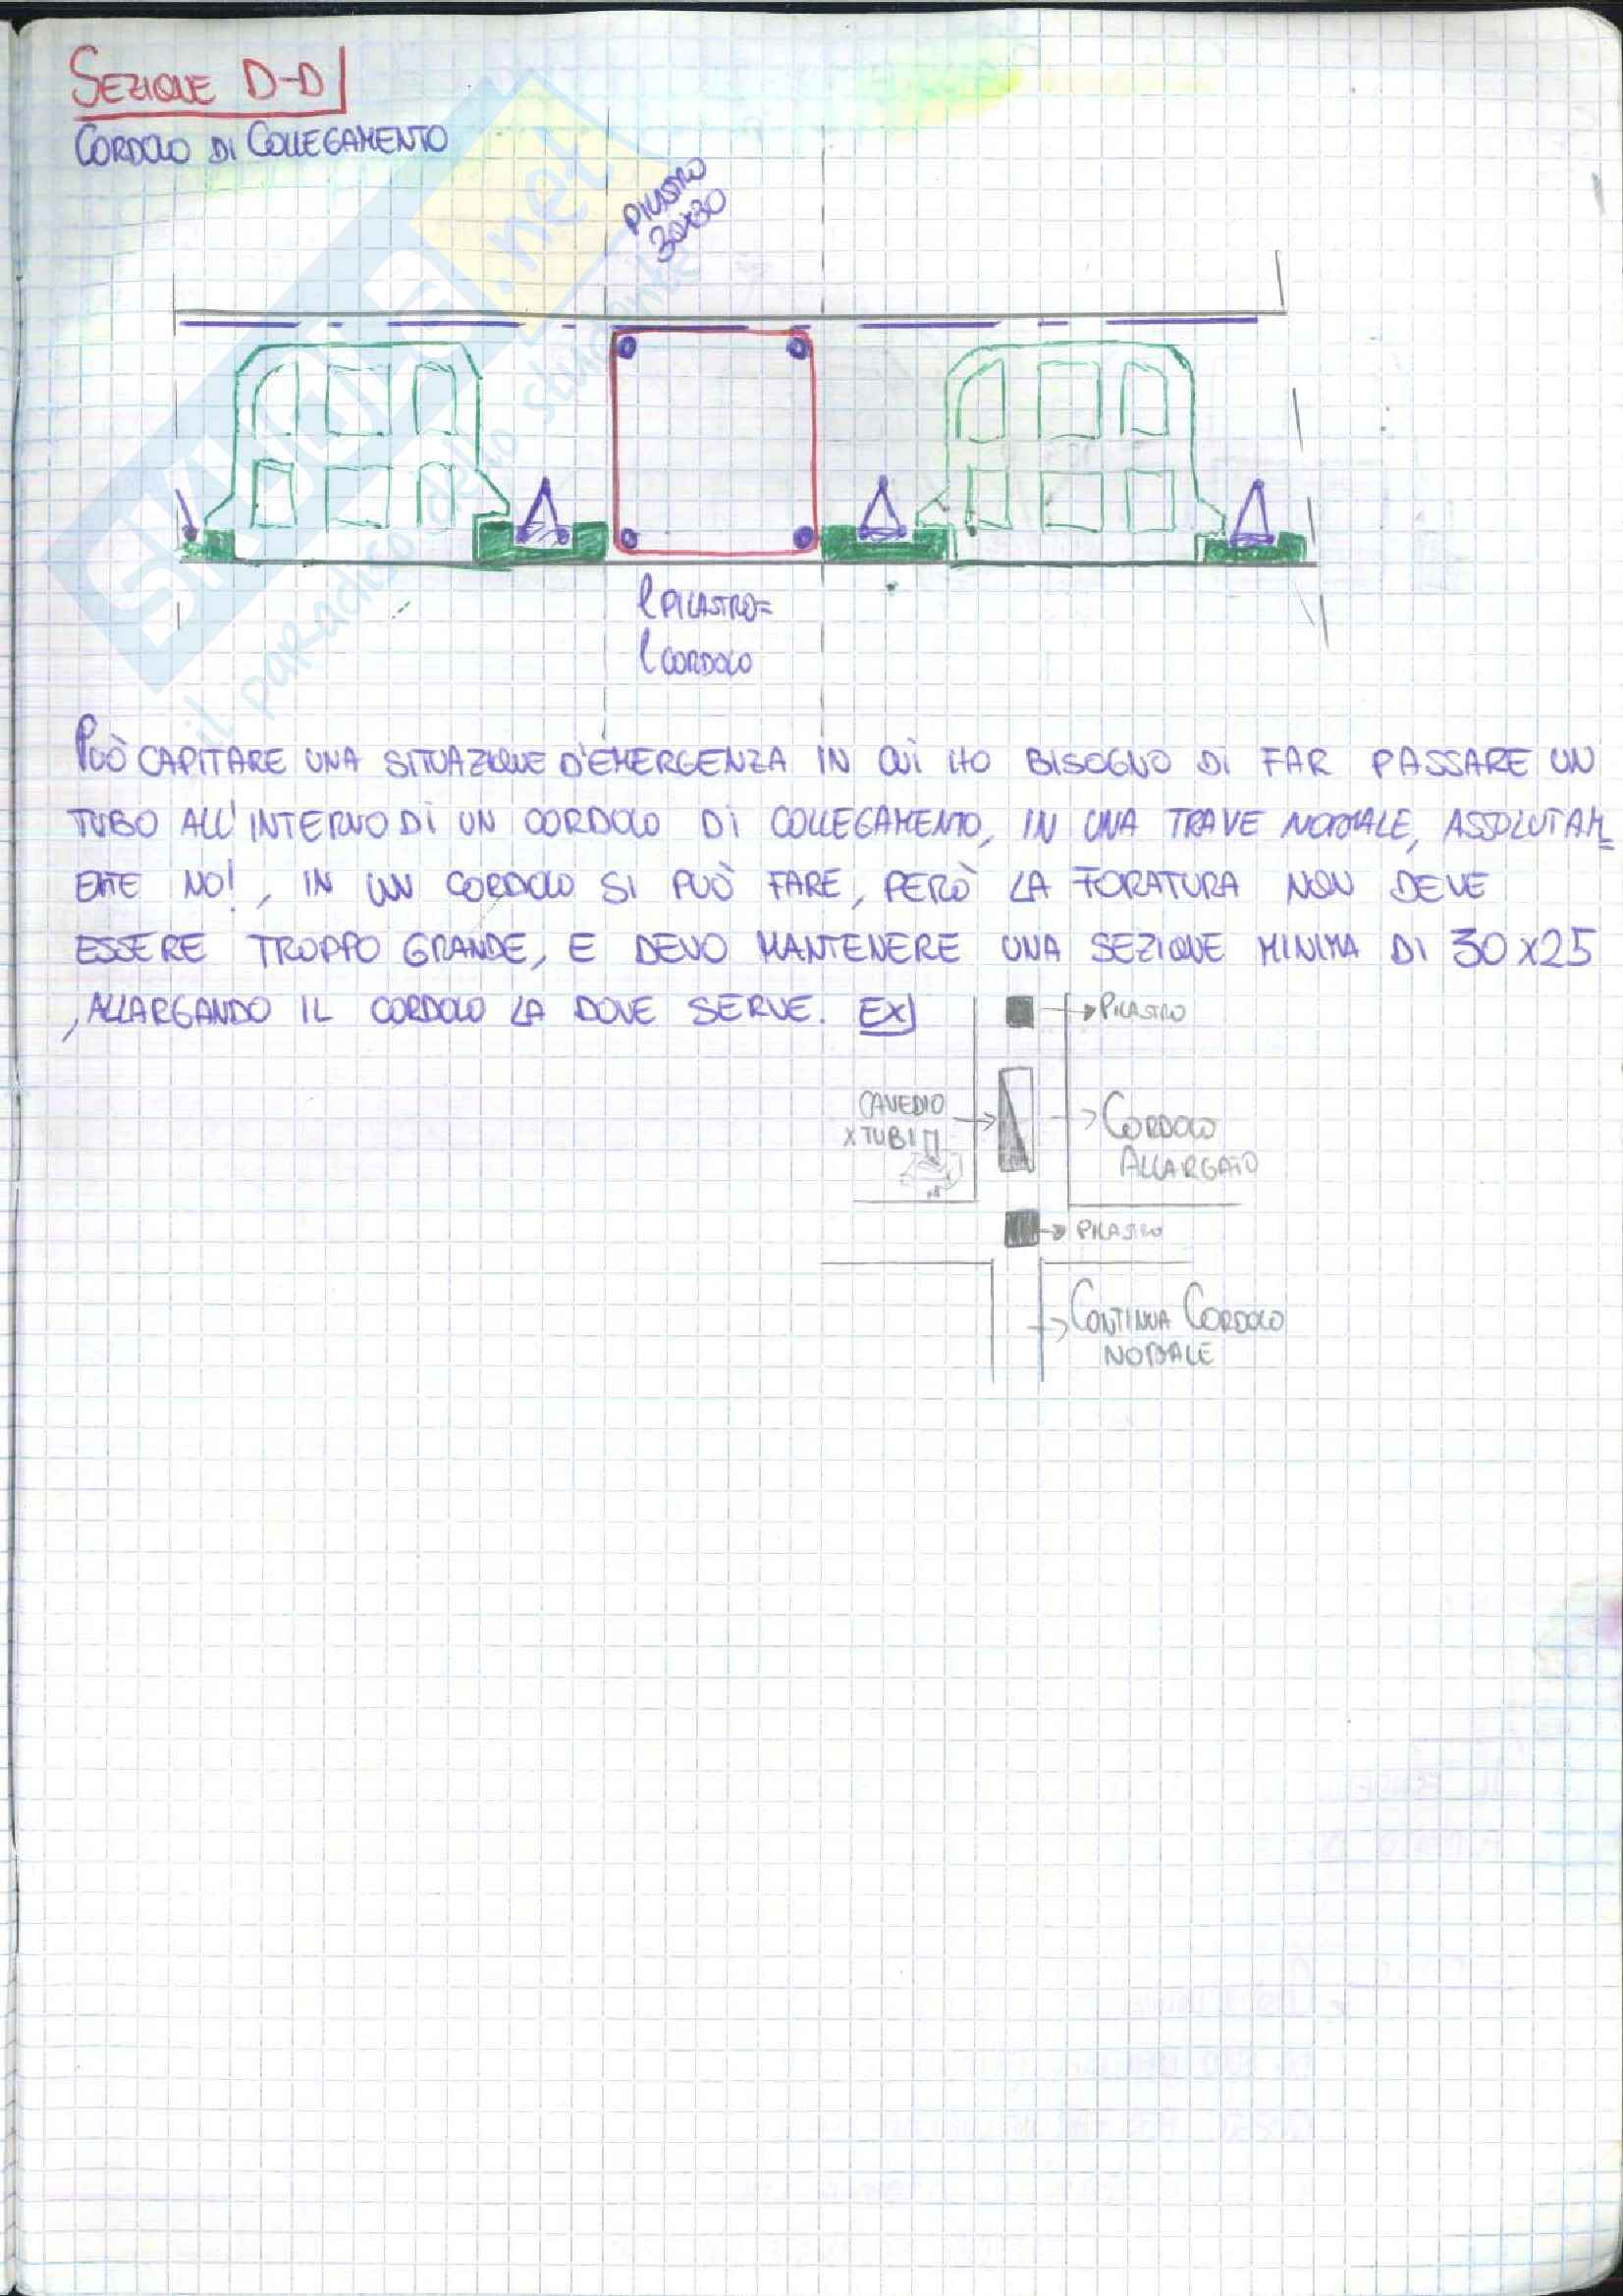 SEZIONE D-D
CORDOLO DI COLLEGAMENTO
PILASTRO
30x30
SKUOLA.net
il paradiso dello studente
l PILASTRO=
l CORDOLO
PUÒ CAPITARE UNA SITUAZIONE D'EMERGENZA IN CUI HO BISOGNO DI FAR PASSARE UN
TUBO ALL'INTERNO DI UN CORDOLO DI COLLEGAMENTO, IN UNA TRAVE NORMALE, ASSOLUTAM
ENTE NO!, IN UN CORDOLO SI PUÒ FARE, PERÒ LA FORATURA NON DEVE
ESSERE TROPPO GRANDE, E DEVO MANTENERE UNA SEZIONE MINIMA DI 30x25
, ALLARGANDO IL CORDOLO LA DOVE SERVE. EX)
PILASTRO
CAVEDIO
X TUBI
CORDOLO
ALLARGATO
PILASTRO
CONTINUA CORDOLO
NORMALE